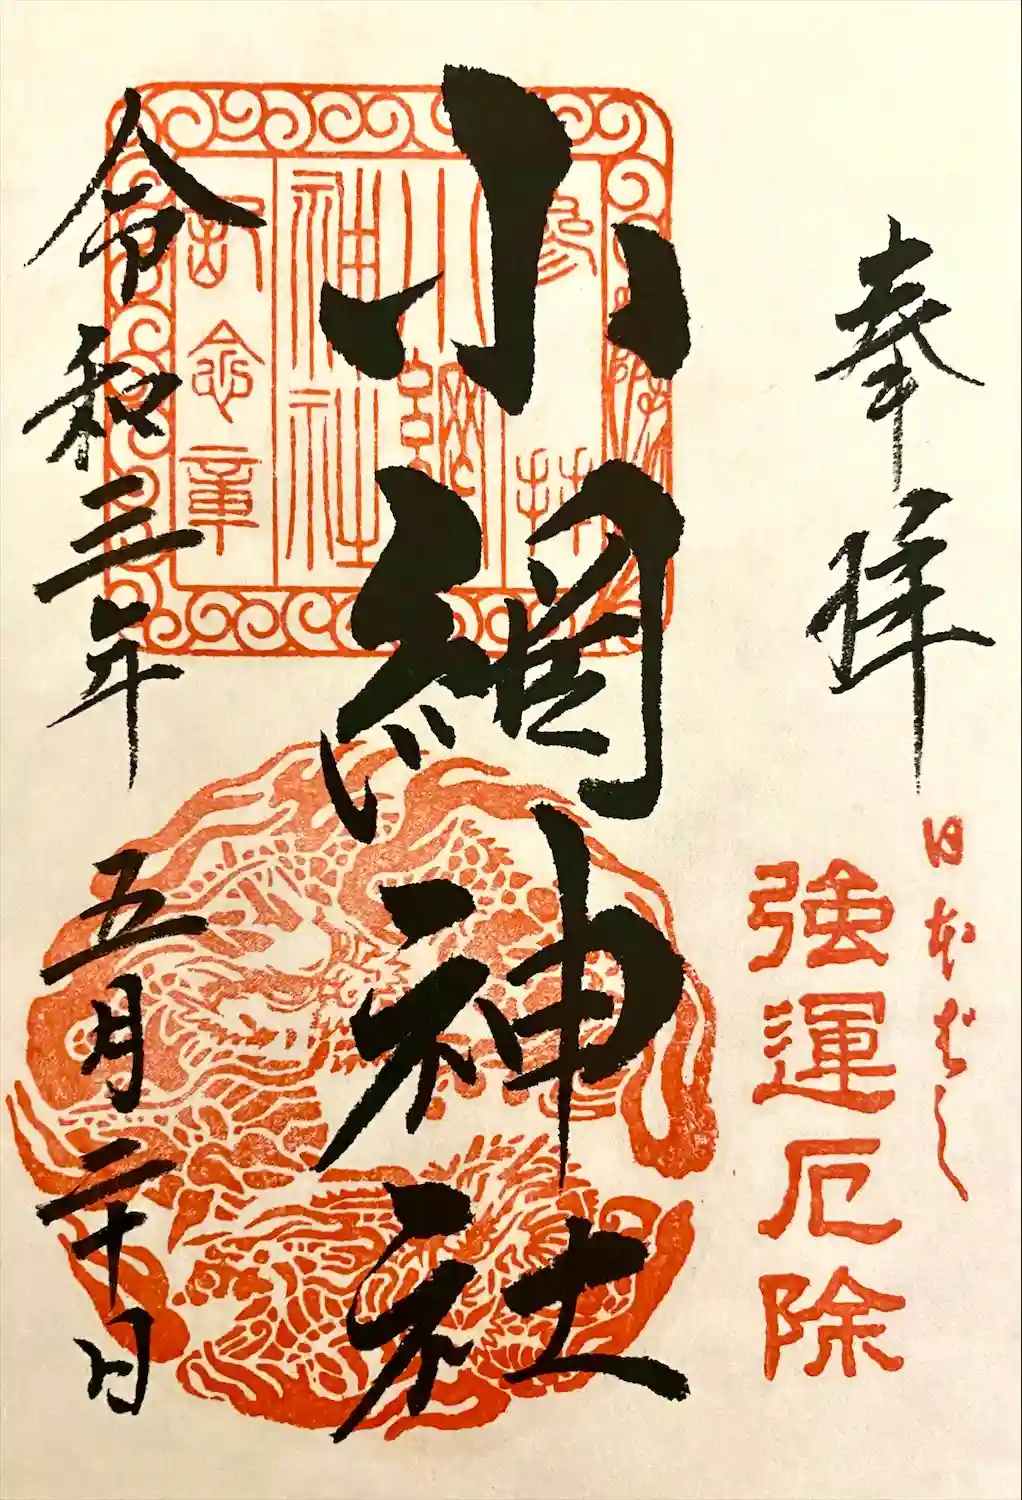 奉拝
日本ばし
強運厄除
小網神社
参拝
小網神社
記念章
令和三年 五月二十日